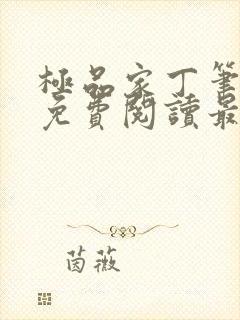 極品家丁筆
免費閱讀最
茵薇